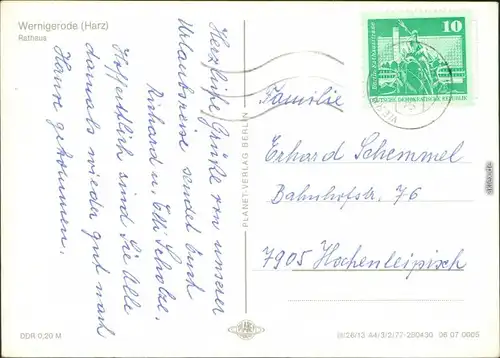 Wernigerode (Harz)
Rathaus
Herzliche Grüße von unserer
Urlaubsreise sendet Euch
Richard u. Elli Scholze.
Hoffentlich sind Sie Alle
damals wieder gut nach
Hause gekommen.
PLANET-VERLAG BERLIN
10
DEUTSCHE DEMOKRATISCHE REPUBLIK
Familie
Erhard Schemmel
Bahnhofstr. 76
7905 Hohenleipisch
DDR 0,20 M
PLANET
III/26/13 A4/3/2/77-290430 06 07 0005